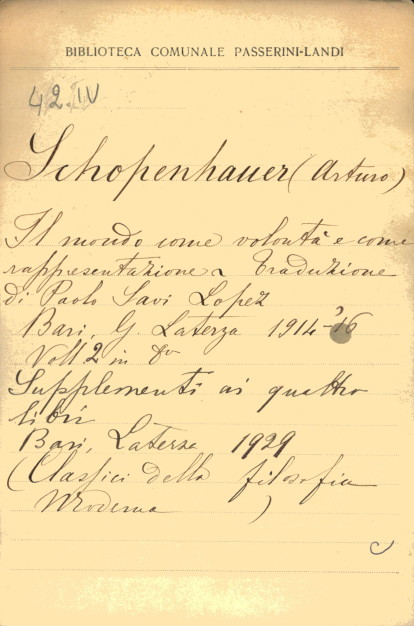 BIBLIOTECA COMUNALE PASSERINI-LANDI
42.IV
Schopenhauer (Arturo)
Il mondo come volontà e come
rappresentazione Traduzione
di Paolo Savi Lopez
Bari, G. Laterza 1914-16
Voll 2 in 8º
Supplementi ai quattro
libri
Bari, Laterza 1929
(Classici della filosofia
moderna)